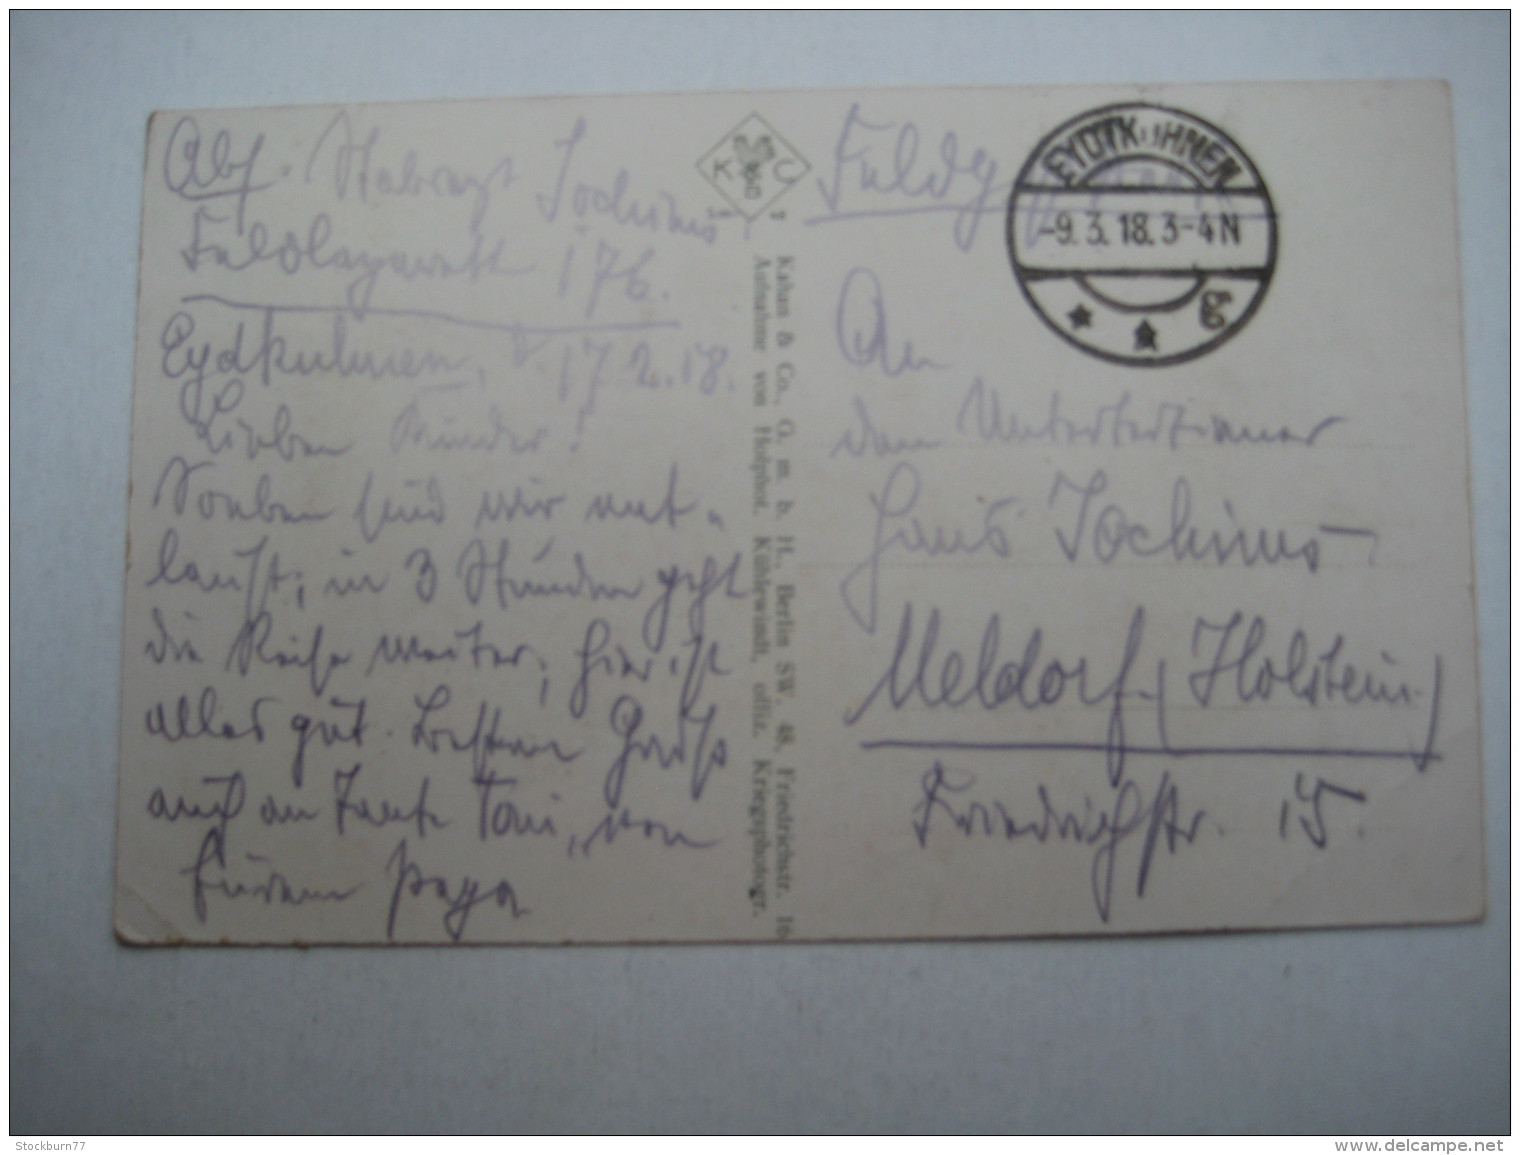 Abs. Stabsarzt Jochims
Feldlazarett 176.
Eydkuhnen, d. 17.2.18.
Lieben Kinder!
Soeben sind wir ent-
laust; in 3 Stunden geht
die Reise weiter; hier ist
alles gut. Besten Gruß
auch an Tante Toni, von
Eurem Papa
K C
Kahan & Co., G. m. b. H., Berlin SW. 48, Friedrichstr. 16
Aufnahme von Hofphot. Kühlewindt, offiz. Kriegsphotogr.
Feldp
EYDTKUHNEN
-9.3.18.3-4N
An
den Untertertianer
Hans Jochims
Meldorf (Holstein)
Friedrichstr. 15.
Stockburn77
www.delcampe.net